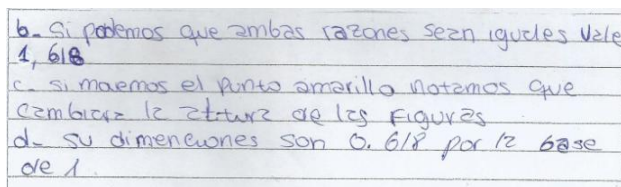 b- Si podemos que ambas razones sean iguales vale
1,618
c- si movemos el punto amarillo notamos que
cambiara la altura de las figuras
d- su dimenciones son 0.618 por la base
de 1